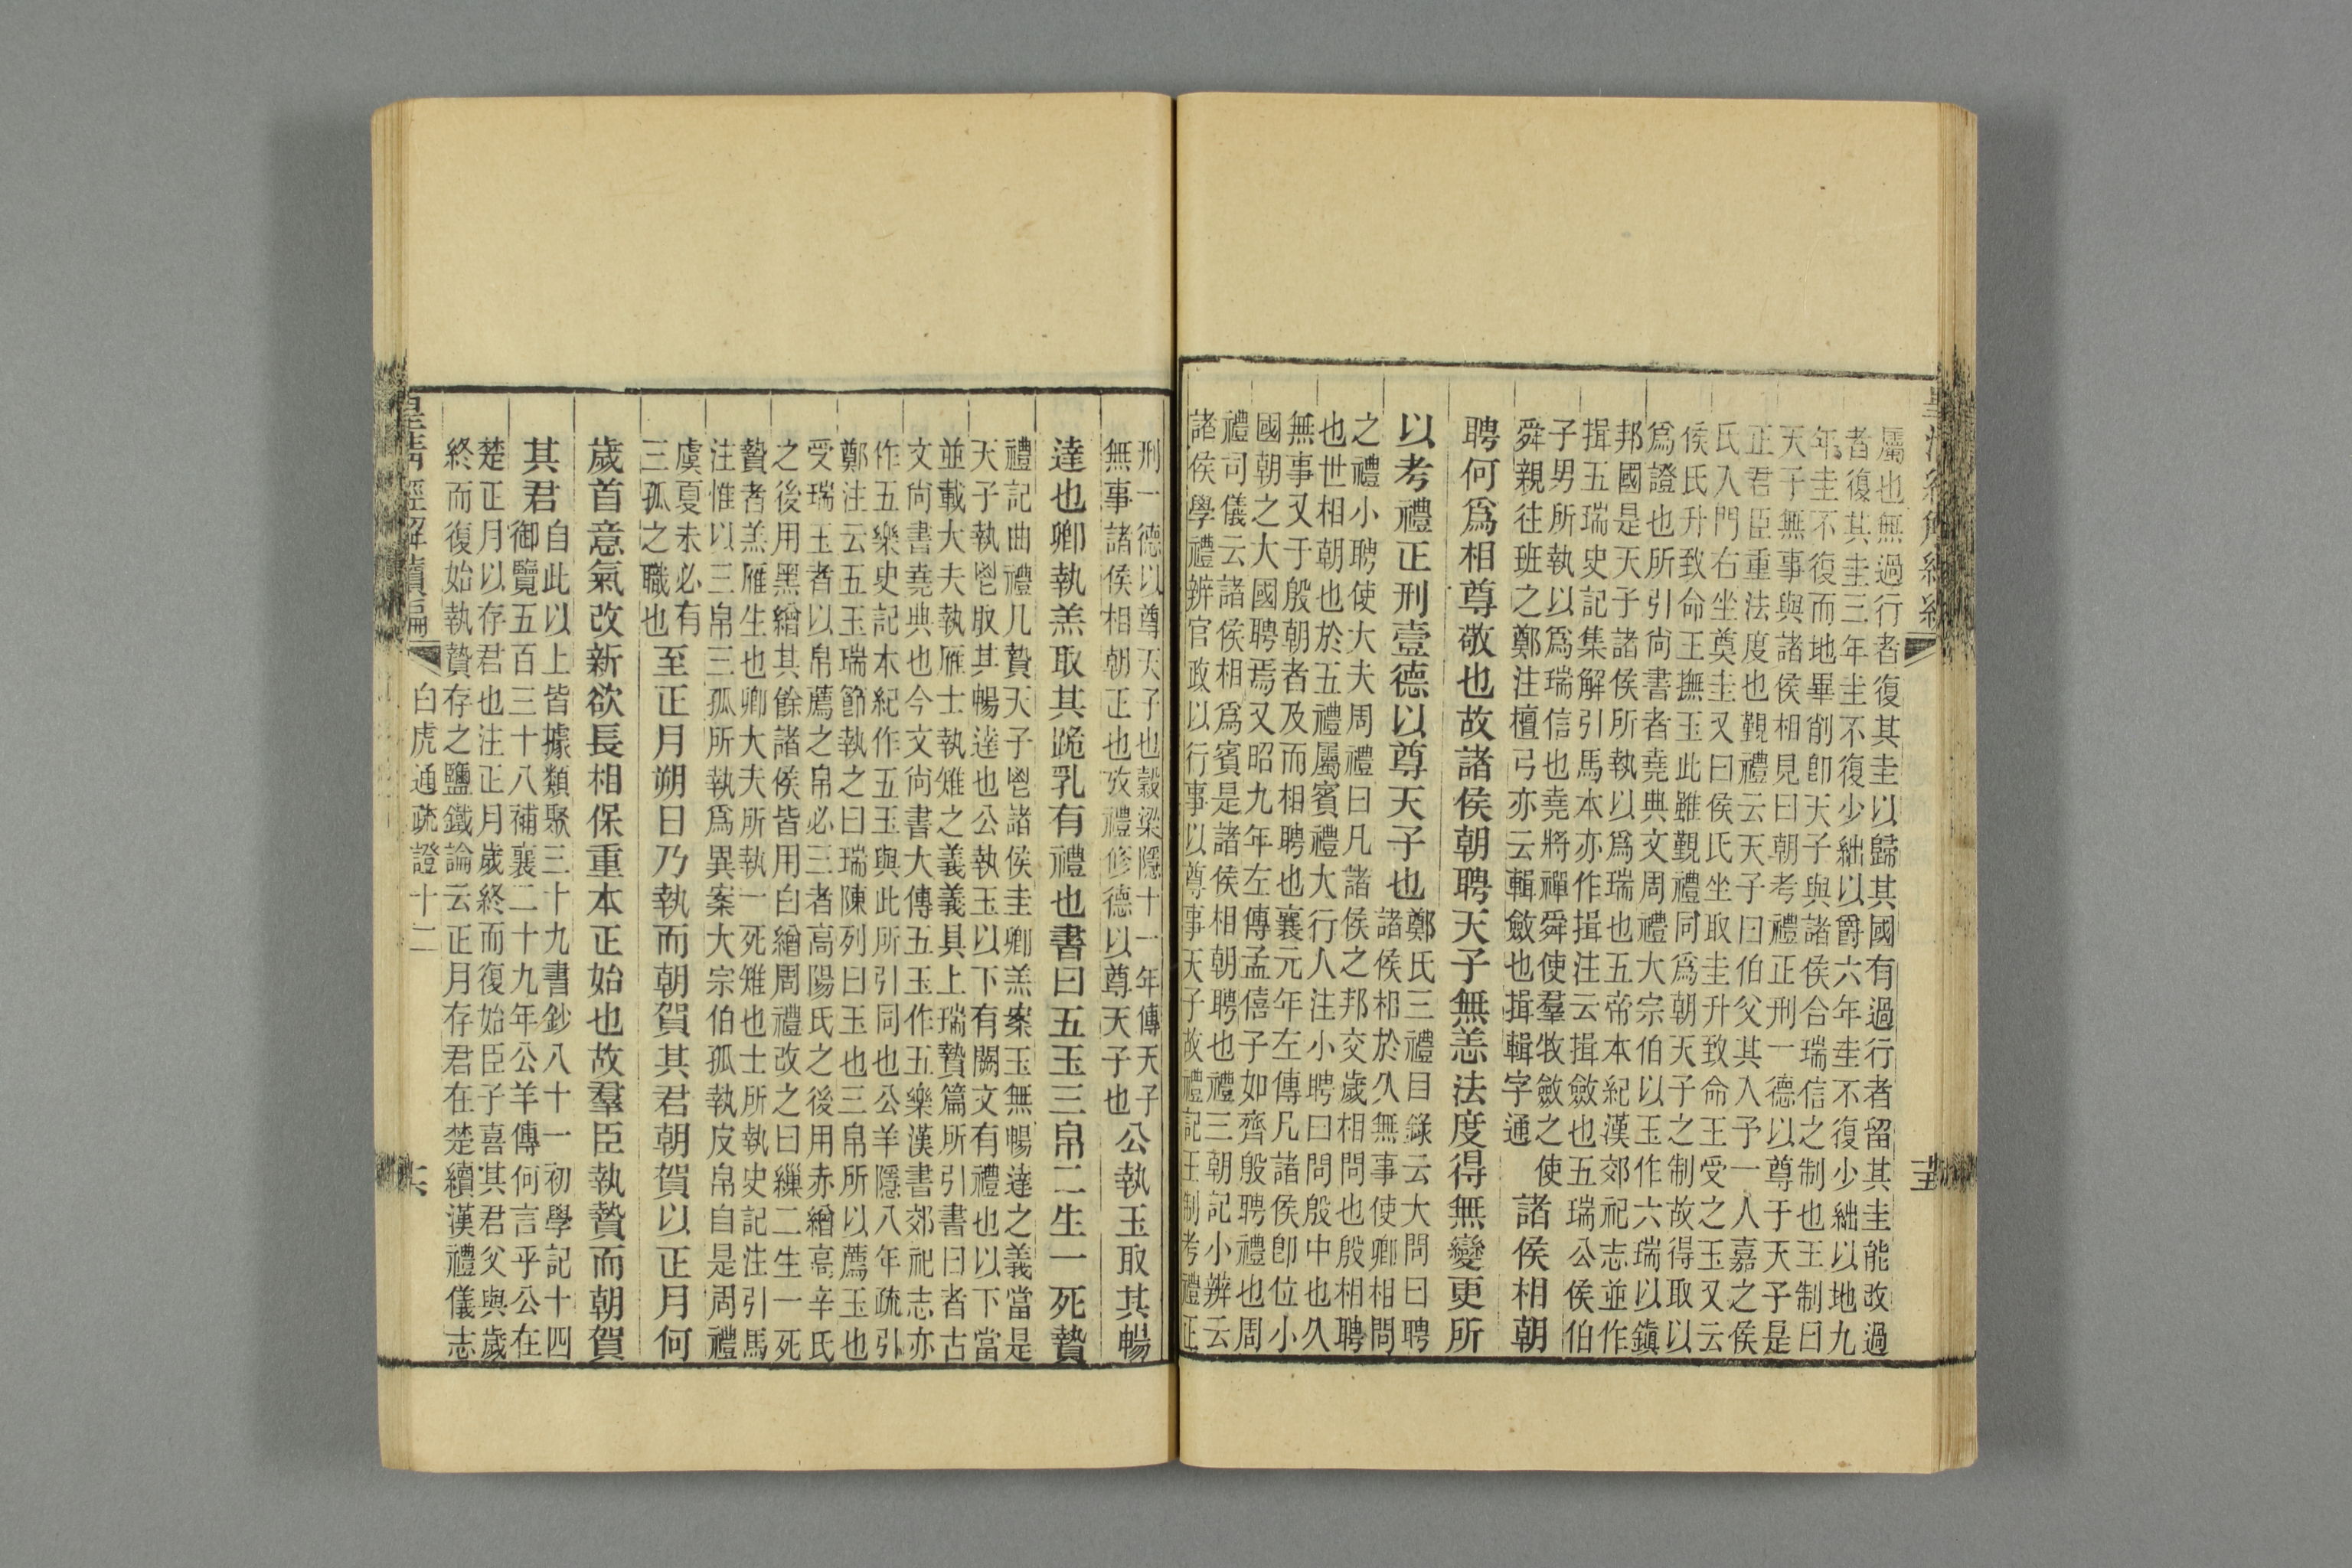 屬也無過行者復其圭以歸其國有過行者留其圭能改過
者復其圭三年圭不復少絀以爵六年圭不復少絀以地九
年圭不復而地畢削卽天子與諸侯合瑞信之制也王制曰
天子無事與諸侯相見曰朝考禮正刑一德以尊于天子是
正君臣重法度也覲禮云天子曰伯父其入予一人嘉之侯
氏入門右坐奠圭又曰侯氏坐取圭升致命王受之玉又云
侯氏升致命王撫玉此雖覲禮同爲朝天子之制故得取以
爲證也所引尙書者堯典文周禮大宗伯以玉作六瑞以鎮
邦國是天子諸侯所執以爲瑞也五帝本紀漢郊祀志並作
揖五瑞史記集解引馬本亦作揖注云揖斂也五瑞公侯伯
子男所執以爲瑞信也堯將禪舜使羣牧斂之使
舜親往班之鄭注檀弓亦云輯斂也揖輯字通
諸侯相朝
聘何爲相尊敬也故諸侯朝聘天子無恙法度得無變更所
以考禮正刑壹德以尊天子也
鄭氏三禮目錄云大問曰聘
諸侯相於久無事使卿相問
之禮小聘使大夫周禮曰凡諸侯之邦交歲相問也殷相聘
也世相朝也於五禮屬賓禮大行人注小聘曰問殷中也久
無事又于殷朝者及而相聘也襄元年左傳凡諸侯卽位小
國朝之大國聘焉又昭九年左傳孟僖子如齊殷聘禮也周
禮司儀云諸侯相爲賓是諸侯相朝聘也禮三朝記小辨云
諸侯學禮辨官政以行事以尊事天子故禮記王制考禮正
刑一德以尊天子也榖梁隱十一年傳天子
無事諸侯相朝正也攷禮修德以尊天子也
公執玉取其暢
達也卿執羔取其跪乳有禮也書曰五玉三帛二生一死贄
禮記曲禮凡贄天子鬯諸侯圭卿羔案玉無暢達之義當是
天子執鬯取其暢達也公執玉以下有闕文有禮也以下當
並載大夫執雁士執雉之義義具上瑞贄篇所引書曰者古
文尙書堯典也今文尙書大傳五玉作五樂漢書郊祀志亦
作五樂史記本紀作五玉與此所引同也公羊隱八年疏引
鄭注云五玉瑞節執之曰瑞陳列曰玉也三帛所以薦玉也
受瑞玉者以帛薦之帛必三者高陽氏之後用赤繒高辛氏
之後用黑繒其餘諸侯皆用白繒周禮改之曰繅二生一死
贄者羔雁生也卿大夫所執一死雉也士所執史記注引馬
注惟以三帛三孤所執爲異案大宗伯孤執皮帛自是周禮
虞夏未必有
三孤之職也
至正月朔日乃執而朝賀其君朝賀以正月何
歲首意氣改新欲長相保重本正始也故羣臣執贄而朝賀
其君
自此以上皆據類聚三十九書鈔八十一初學記十四
御覽五百三十八補襄二十九年公羊傳何言乎公在
楚正月以存君也注正月歲終而復始臣子喜其君父與歲
終而復始執贄存之鹽鐵論云正月存君在楚續漢禮儀志
皇清經解續編
白虎通疏證十二